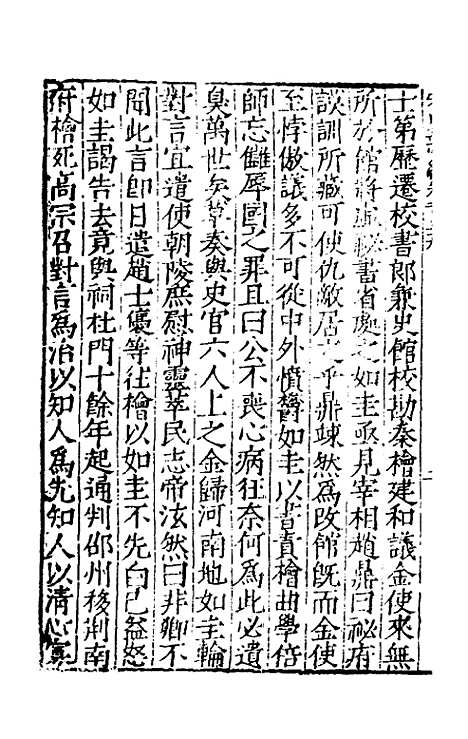 士第歷遷校書郎兼史館校勘秦檜建和議金使來無
所於館將虛祕書省處之如圭亟見宰相趙鼎曰祕府
謨訓所藏可使仇敵居之乎鼎竦然爲改館旣而金使
至悖傲議多不可從中外憤鬱如圭以書責檜曲學倍
師忘讎辱國之罪且曰公不喪心病狂奈何爲此必遺
臭萬世矣草奏與史官六人上之金歸河南地如圭輪
對言宜遣使朝陵庶慰神靈萃民志帝泫然曰非卿不
聞此言卽日遣趙士㒟等往檜以如圭不先白已益怒
如圭謁告去竟與祠杜門十餘年起通判邵州移荆南
府檜死高宗召對言爲治以知人爲先知人以清心寡